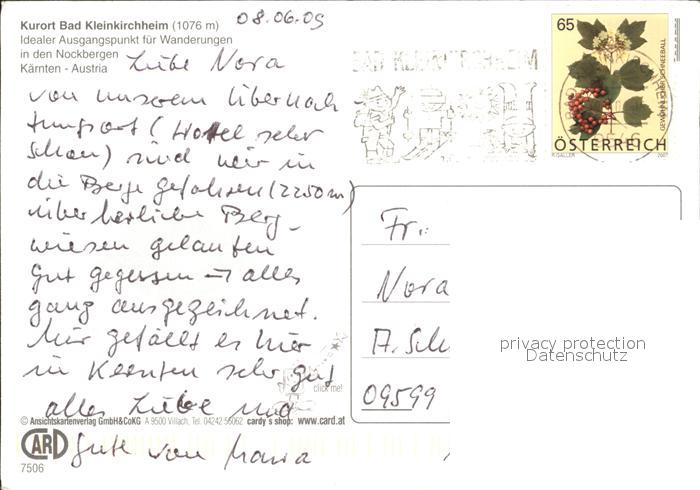 Kurort Bad Kleinkirchheim (1076 m)
Idealer Ausgangspunkt für Wanderungen
in den Nockbergen
Kärnten - Austria
08.06.09
Liebe Nora
von unserem Übernach
tungsort (Hotel sehr
schön) sind wir in
die Berge gefahren (2250m)
über herliche Berg-
wiesen gelaufen
gut gegessen → alles
ganz ausgezeichnet.
Mir gefällt es hier
in Kärnten sehr gut
alles Liebe und
Gute von Maria
click me!
© Ansichtskartenverlag GmbH&CoKG A 9500 Villach, Tel. 04242 55062 cardy´s shop: www.card.at
CARD
7506
BAD KLEINKIRCHHEIM
65
GEWÖHNLICHER SCHNEEBALL
ÖSTERREICH
2007
Fr.:
Nora
A. Sch
09599
privacy protection
Datenschutz